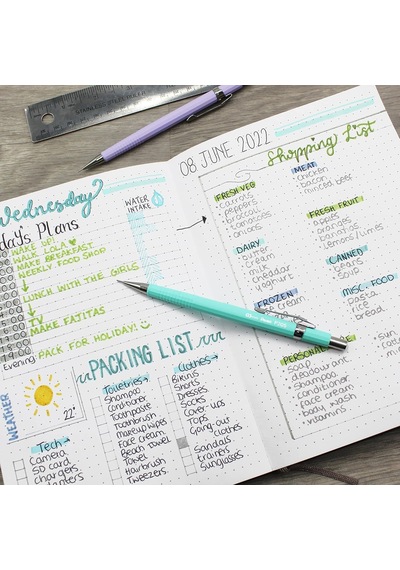 STAINLESS STEEL
Wednesday
day's Plans
WAKE UP!
WALK LOLA
MAKE BREAKFAST
WEEKLY FOOD SHOP
LUNCH WITH THE GIRLS
TV
MAKE FAJITAS
Evening
PACK FOR HOLIDAY!
WATER
INTAKE
WEATHER
22°
PACKING LIST
Tech
Camera
SD card
chargers
Toiletries
Shampoo
Conditioner
Toothpaste
Toothbrush
Makeup wipes
Face cream
Beach Towel
Towel
Hairbrush
Tweezers
Clothes
Bikinis
Shorts
Dresses
Socks
Cover-ups
Tops
Going-out
clothes
Sandals
trainers
Sunglasses
08 JUNE 2022
Shopping List
FRESH VEG
carrots
peppers
broccoli
tomatoes
onions
DAIRY
butter
cream
milk
cheddar
yoghurt
FROZEN
ice cream
PERSONAL
soap
deodourant
shampoo
conditioner
face cream
body wash
vitamins
MEAT
chicken
bacon
minced beef
FRESH FRUIT
apples
oranges
bananas
lemons/limes
CANNED
beans
soup
MISC. FOOD
pasta
rice
bread
sun